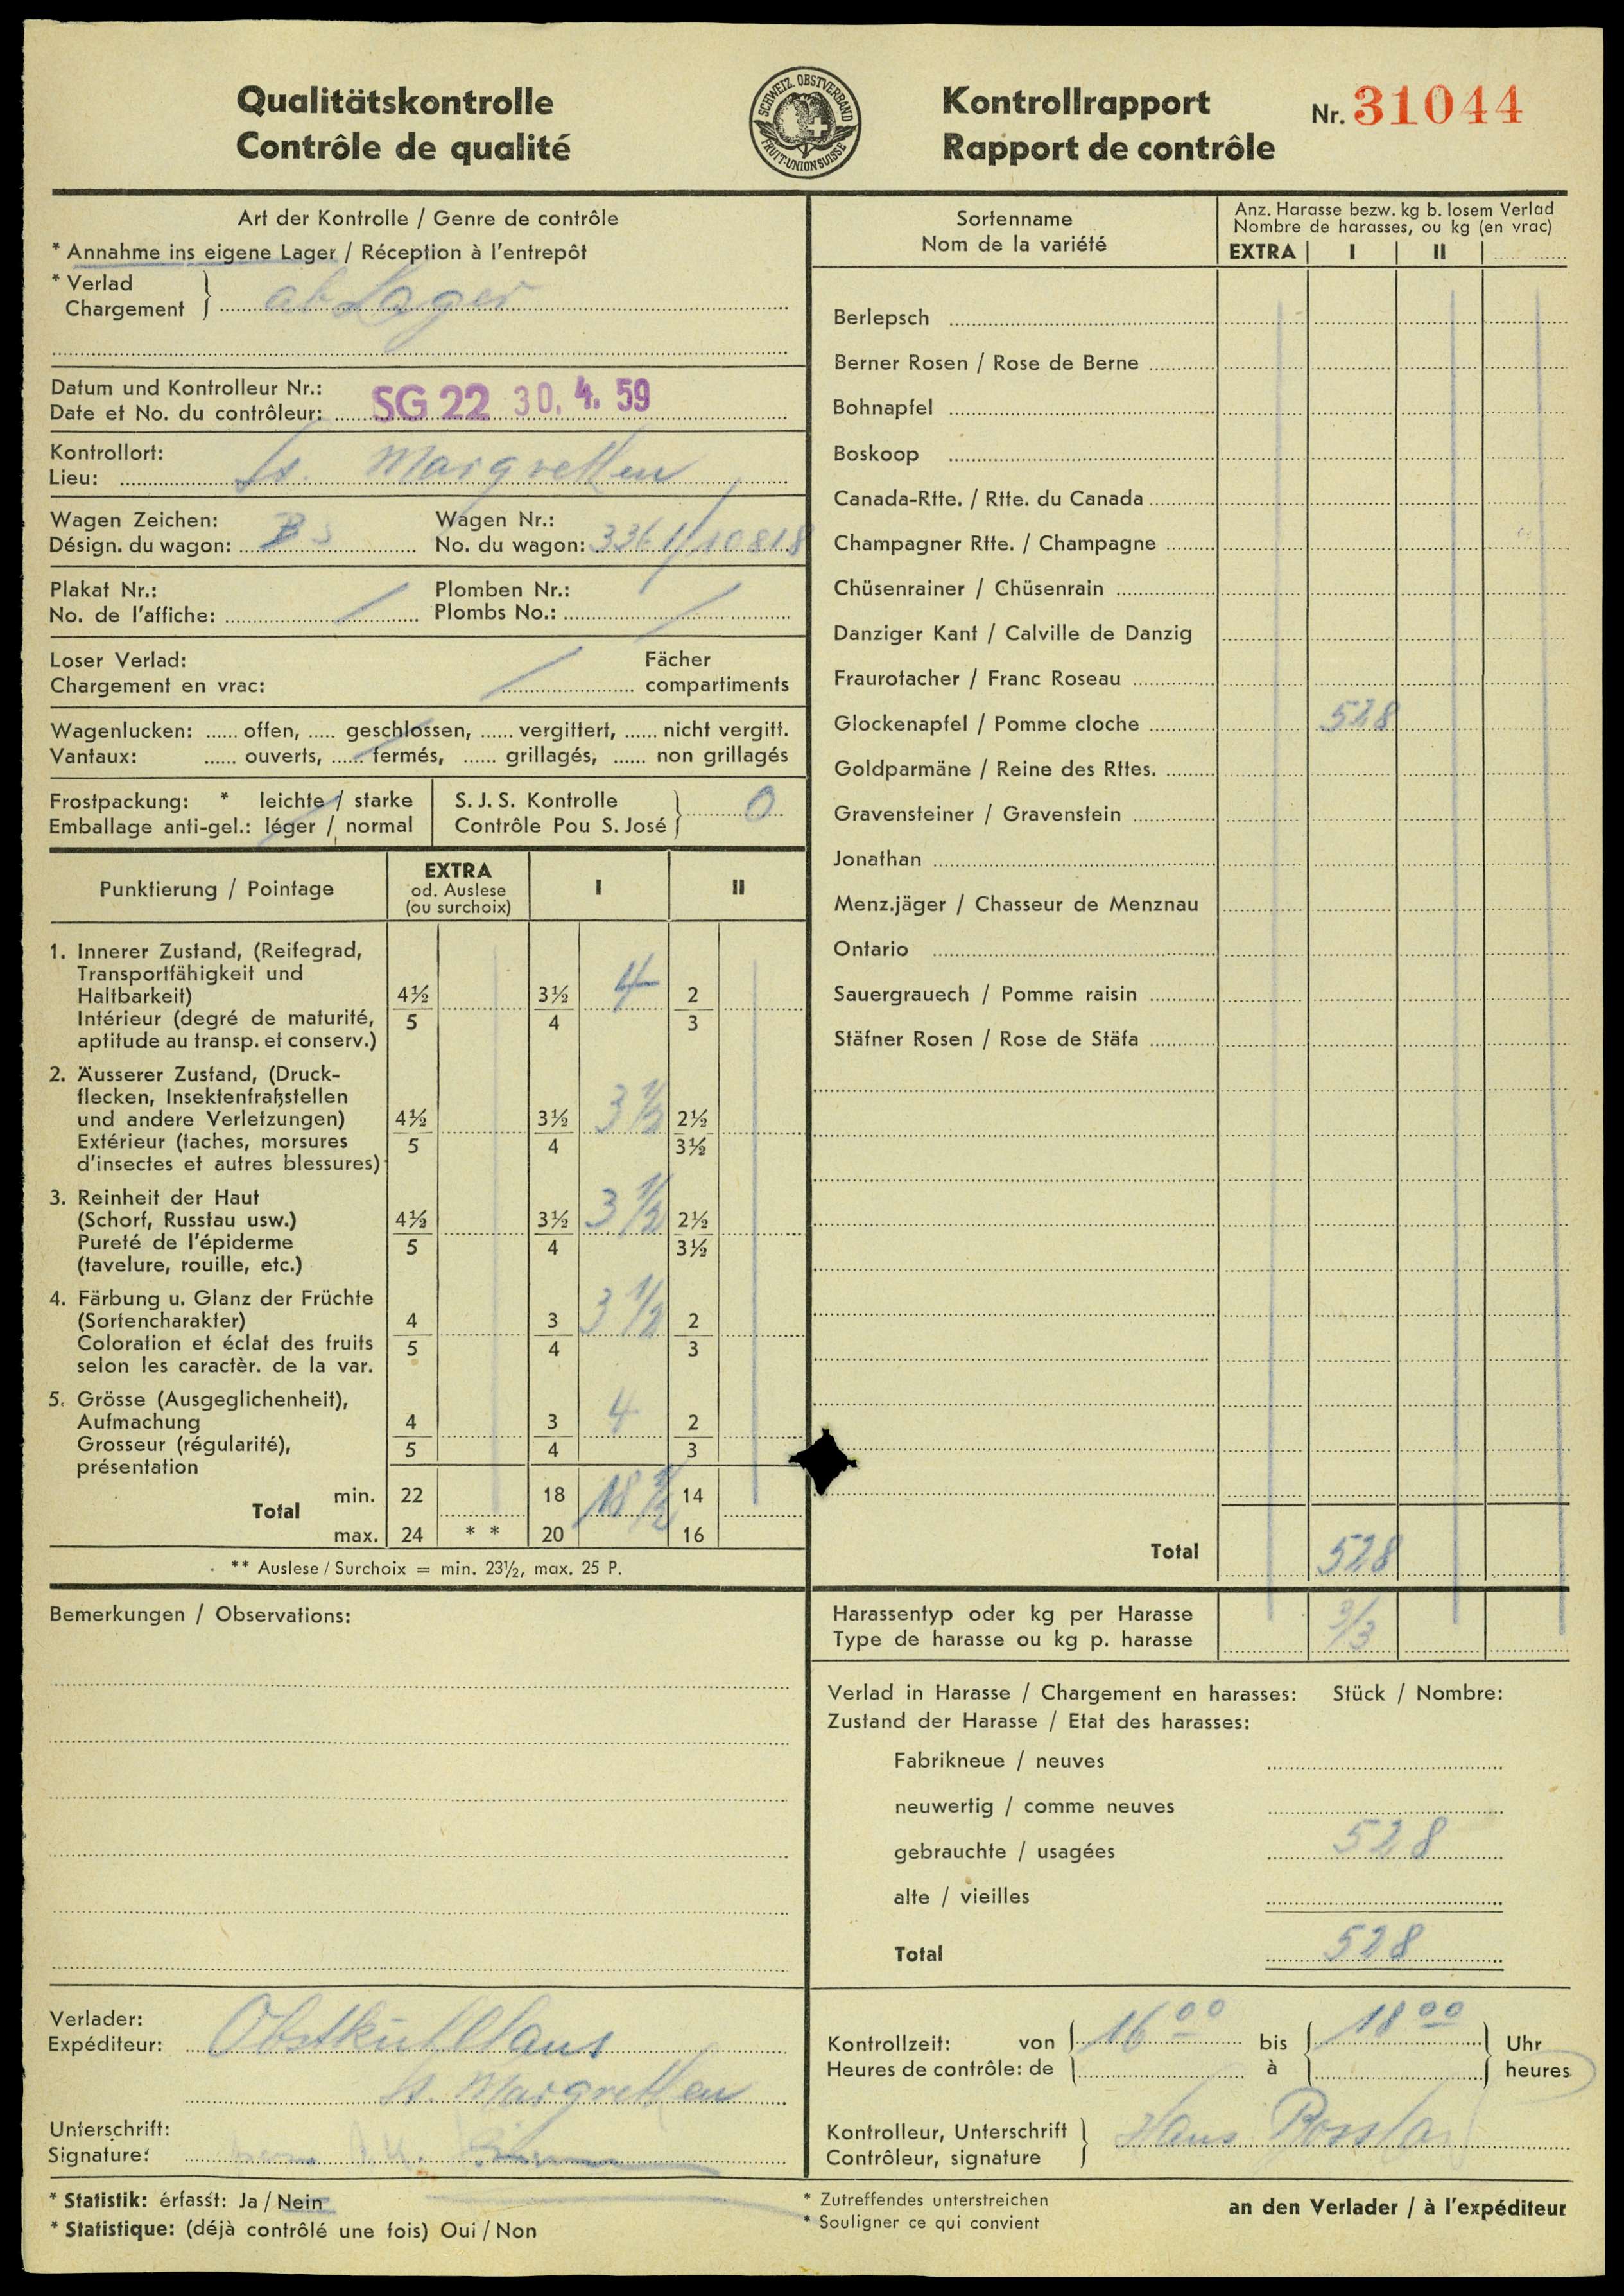 Qualitätskontrolle
Contrôle de qualité
SCHWEIZ. OBSTVERBAND
FRUIT-UNION SUISSE
Kontrollrapport
Rapport de contrôle
Nr. 31044
Art der Kontrolle / Genre de contrôle
* Annahme ins eigene Lager / Réception à l'entrepôt
* Verlad
Chargement } ab Lager
Datum und Kontrolleur Nr.:
Date et No. du contrôleur: SG 22 30. 4. 59
Kontrollort:
Lieu: St. Margrethen
Wagen Zeichen: Wagen Nr.:
Désign. du wagon: No. du wagon: 3361/10818
Plakat Nr.: Plomben Nr.:
No. de l'affiche: / Plombs No.: /
Loser Verlad: Fächer
Chargement en vrac: / compartiments
Wagenlucken: ...... offen, ..... geschlossen, ...... vergittert, ...... nicht vergitt.
Vantaux: ...... ouverts, ...... fermés, ...... grillagés, ...... non grillagés
Frostpackung: * leichte / starke
Emballage anti-gel.: léger / normal
S. J. S. Kontrolle
Contrôle Pou S. José } 0
Punktierung / Pointage
EXTRA
od. Auslese
(ou surchoix)
I II
1. Innerer Zustand, (Reifegrad,
Transportfähigkeit und
Haltbarkeit) 4½ 3½ 4 2
Intérieur (degré de maturité, 5 4 3
aptitude au transp. et conserv.)
2. Äusserer Zustand, (Druck-
flecken, Insektenfraßstellen
und andere Verletzungen) 4½ 3½ 3 ½ 2½
Extérieur (taches, morsures 5 4 3½
d'insectes et autres blessures)
3. Reinheit der Haut
(Schorf, Russtau usw.) 4½ 3½ 3 ½ 2½
Pureté de l'épiderme 5 4 3½
(tavelure, rouille, etc.)
4. Färbung u. Glanz der Früchte
(Sortencharakter) 4 3 3 ½ 2
Coloration et éclat des fruits 5 4 3
selon les caractèr. de la var.
5. Grösse (Ausgeglichenheit),
Aufmachung 4 3 4 2
Grosseur (régularité), 5 4 3
présentation
Total min. 22 18 18 ½ 14
max. 24 * * 20 16
** Auslese / Surchoix = min. 23½, max. 25 P.
Bemerkungen / Observations:
Verlader:
Expéditeur: Obstkühlhaus
St. Margrethen
Unterschrift:
Signature:
* Statistik: erfasst: Ja / Nein
* Statistique: (déjà contrôlé une fois) Oui / Non
Sortenname
Nom de la variété
Anz. Harasse bezw. kg b. losem Verlad
Nombre de harasses, ou kg (en vrac)
EXTRA I II
Berlepsch
Berner Rosen / Rose de Berne
Bohnapfel
Boskoop
Canada-Rtte. / Rtte. du Canada
Champagner Rtte. / Champagne
Chüsenrainer / Chüsenrain
Danziger Kant / Calville de Danzig
Fraurotacher / Franc Roseau
Glockenapfel / Pomme cloche 528
Goldparmäne / Reine des Rttes.
Gravensteiner / Gravenstein
Jonathan
Menz.jäger / Chasseur de Menznau
Ontario
Sauergrauech / Pomme raisin
Stäfner Rosen / Rose de Stäfa
Total 528
Harassentyp oder kg per Harasse
Type de harasse ou kg p. harasse 3/3
Verlad in Harasse / Chargement en harasses: Stück / Nombre:
Zustand der Harasse / Etat des harasses:
Fabrikneue / neuves
neuwertig / comme neuves
gebrauchte / usagées 528
alte / vieilles
Total 528
Kontrollzeit: von 16 00 bis 18 00 Uhr
Heures de contrôle: de à heures
Kontrolleur, Unterschrift
Contrôleur, signature } Hans
* Zutreffendes unterstreichen
* Souligner ce qui convient
an den Verlader / à l'expéditeur